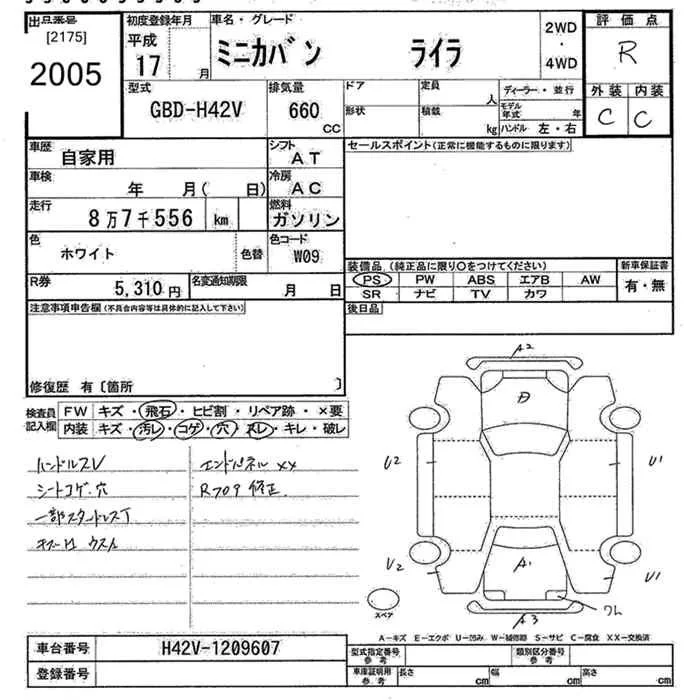 出品番号
[2175]
2005
初度登録年月
平成
17 月
車名・グレード
ミニカバン ライラ
2WD
・
4WD
評価点
R
外装 内装
C C
型式
GBD-H42V
排気量
660
CC
ドア
形状
定員
人
積載
kg
ディーラー・並行
モデル年式 年
ハンドル 左・右
車歴
自家用
シフト
AT
車検
年 月( 日)
冷房
AC
走行
8万7千556 km
燃料
ガソリン
色
ホワイト
色替
色コード
W09
R券
5,310円
名変通知期限
月 日
セールスポイント(正常に機能するものに限ります)
装備品 (純正品に限り○をつけてください)
新車保証書
PS PW ABS エアB AW
SR ナビ TV カワ
有・無
後日品
注意事項申告欄(不具合内容等は具体的に記入して下さい)
修復歴 有〔箇所 〕
検査員
記入欄
FW キズ・飛石・ヒビ割・リペア跡・×要
内装 キズ・汚レ・コゲ・穴・スレ・キレ・破レ
ハンドルスレ
シートコゲ・穴
一部スタッドレスT
エンドパネル XX
R709 修正
A2
U2
U1
A1
U2
U1
A3
ワレ
スペア
A-キズ E-エクボ U-凹み W-補修跡 S-サビ C-腐食 XX-交換済
車台番号
H42V-1209607
登録番号
型式指定番号
参考
類別区分番号
参考
車庫証明用
参考
長さ cm
幅 cm
高さ cm